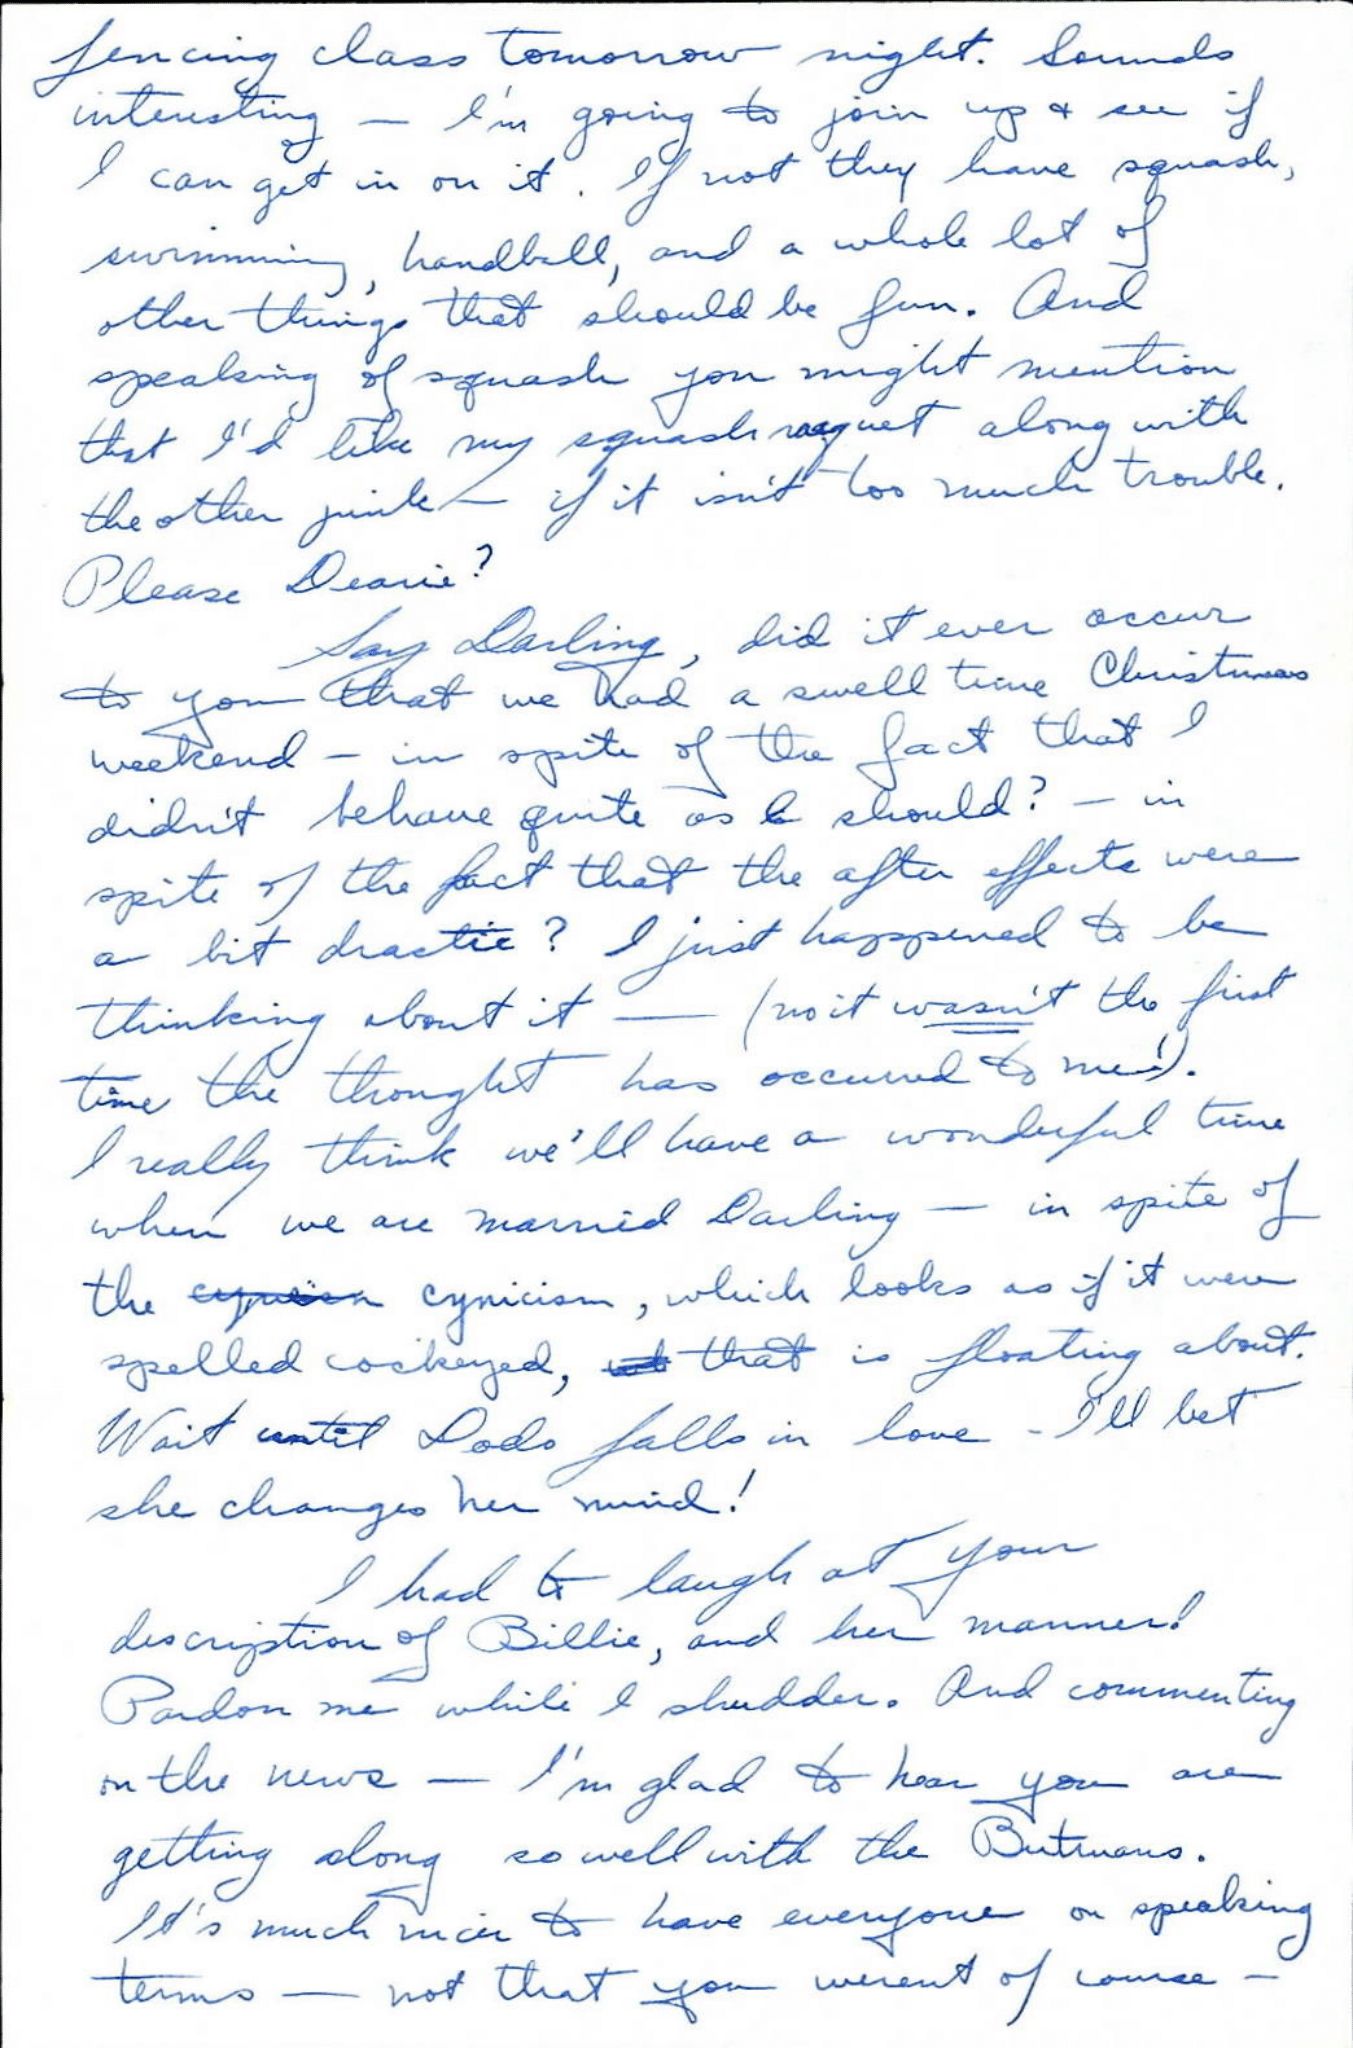 fencing class tomorrow night. Sounds
interesting — I'm going to join up & see if
I can get in on it. If not they have squash,
swimming, handball, and a whole lot of
other things that should be fun. And
speaking of squash you might mention
that I'd like my squash raquet along with
the other junk — if it isn't too much trouble.
Please Dearie?
Say Darling, did it ever occur
to you that we had a swell time Christmas
weekend — in spite of the fact that I
didn't behave quite as I should? — in
spite of the fact that the after effects were
a bit drastic? I just happened to be
thinking about it — (no it wasn't the first
time the thought has occurred to me!).
I really think we'll have a wonderful time
when we are married Darling — in spite of
the cynicism, which looks as if it were
spelled cockeyed, that is floating about.
Wait until Dodo falls in love - I'll bet
she changes her mind!
I had to laugh at your
description of Billie, and her manner!
Pardon me while I shudder. And commenting
on the news — I'm glad to hear you are
getting along so well with the Butmans.
It's much nicer to have everyone on speaking
terms — not that you werent of course —